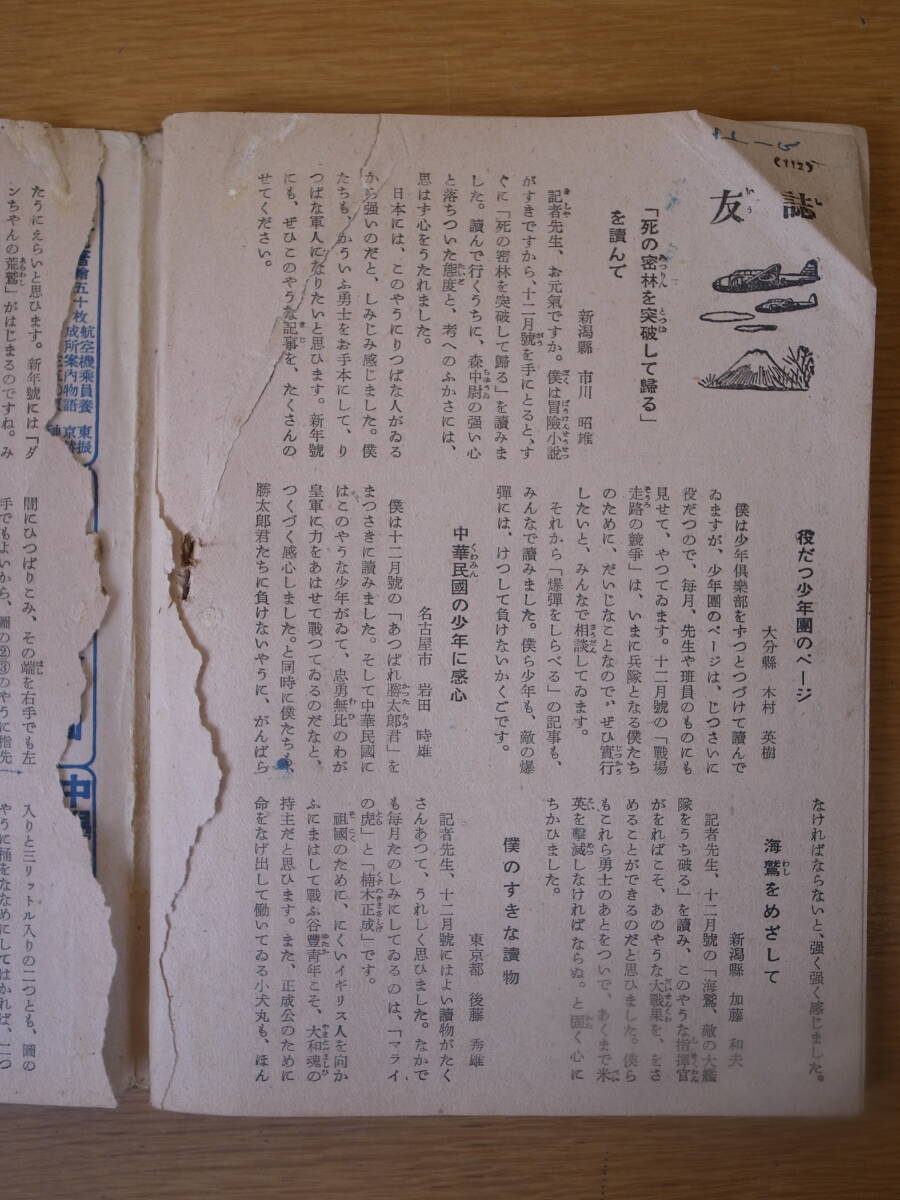 誌友
「死の密林を突破して歸る」
を讀んて
新潟縣 市川 昭雄
記者先生、お元氣ですか。僕は冒險小說
がすきですから、十二月號を手にとると、す
ぐに「死の密林を突破して歸る」を讀みま
した。讀んで行くうちに、森中尉の强い心
と落ちついた態度と、考へのふかさには、
思はず心をうたれました。
日本には、このやうにりつぱな人がゐる
から强いのだと、しみじみ感じました。僕
たちも、かういふ勇士をお手本にして、り
つぱな軍人になりたいと思ひます。新年號
にも、ぜひこのやうな記事を、たくさんの
せてください。
役だつ少年團のページ
大分縣 木村 英樹
僕は少年俱樂部をずつとつづけて讀んで
ゐますが、少年團のページは、じつさいに
役だつので、每月、先生や班員のものにも
見せて、やつてゐます。十二月號の「戰場
走路の競爭」は、いまに兵隊となる僕たち
のために、だいじなことなので、ぜひ實行
したいと、みんなで相談してゐます。
それから「爆彈をしらべる」の記事も、
みんなで讀みました。僕ら少年も、敵の爆
彈には、けつして負けないかくごです。
中華民國の少年に感心
名古屋市 岩田 時雄
僕は十二月號の「あつぱれ勝太郎君」を
まつさきに讀みました。そして中華民國に
はこのやうな少年がゐて、忠勇無比のわが
皇軍に力をあはせて戰つてゐるのだなと、
つくづく感心しました。と同時に僕たちも、
勝太郎君たちに負けないやうに、がんばら
なければならないと、强く强く感じました。
海鷲をめざして
新潟縣 加藤 和夫
記者先生、十二月號の「海鷲、敵の大艦
隊をうち破る」を讀み、このやうな指揮官
がをればこそ、あのやうな大戰果を、をさ
めることができるのだと思ひました。僕ら
もこれら勇士のあとをついで、あくまで米
英を擊滅しなければならぬ。と固く心に
ちかひました。
僕のすきな讀物
東京都 後藤 秀雄
記者先生、十二月號にはよい讀物がたく
さんあつて、うれしく思ひました。なかで
も每月たのしみにしてゐるのは、「マライ
の虎」と「楠木正成」です。
祖國のために、にくいイギリス人を向か
ふにまはして戰ふ谷豐靑年こそ、大和魂の
持主だと思ひます。また、正成公のために
命をなげ出して働いてゐる小犬丸も、ほん
たうにえらいと思ひます。新年號には「ダ
ンちやんの荒鷲」がはじまるのですね。み
間にひつぱりこみ、その端を右手でも左
手でもよいから、圖の②③のやうに指先
入りと三リットル入りの二つとも、圖の
やうに桶をななめにしてはかれば、二つ
五十枚
航空機乘員養
成所案內物語